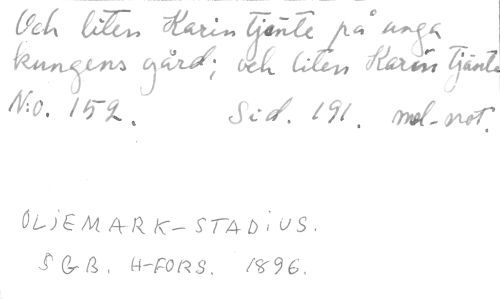 Och liten Karin tjente på unga
kungens gård; och liten Karin tjänte
N:o. 152. Sid. 191. mel-not.
OLJEMARK-STADIUS.
SGB. H-FORS. 1896.